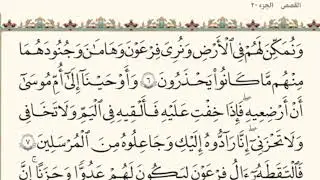 القصص الجزء ٢٠
وَنُمَكِّنَ لَهُمْ فِى ٱلْأَرْضِ وَنُرِىَ فِرْعَوْنَ وَهَـٰمَـٰنَ وَجُنُودَهُمَا
مِنْهُم مَّا كَانُوا۟ يَحْذَرُونَ ٦ وَأَوْحَيْنَآ إِلَىٰٓ أُمِّ مُوسَىٰٓ
أَنْ أَرْضِعِيهِ ۖ فَإِذَا خِفْتِ عَلَيْهِ فَأَلْقِيهِ فِى ٱلْيَمِّ وَلَا تَخَافِى
وَلَا تَحْزَنِىٓ ۖ إِنَّا رَآدُّوهُ إِلَيْكِ وَجَاعِلُوهُ مِنَ ٱلْمُرْسَلِينَ ٧
فَٱلْتَقَطَهُۥٓ ءَالُ فِرْعَوْنَ لِيَكُونَ لَهُمْ عَدُوًّا وَحَزَنًا ۗ إِنَّ